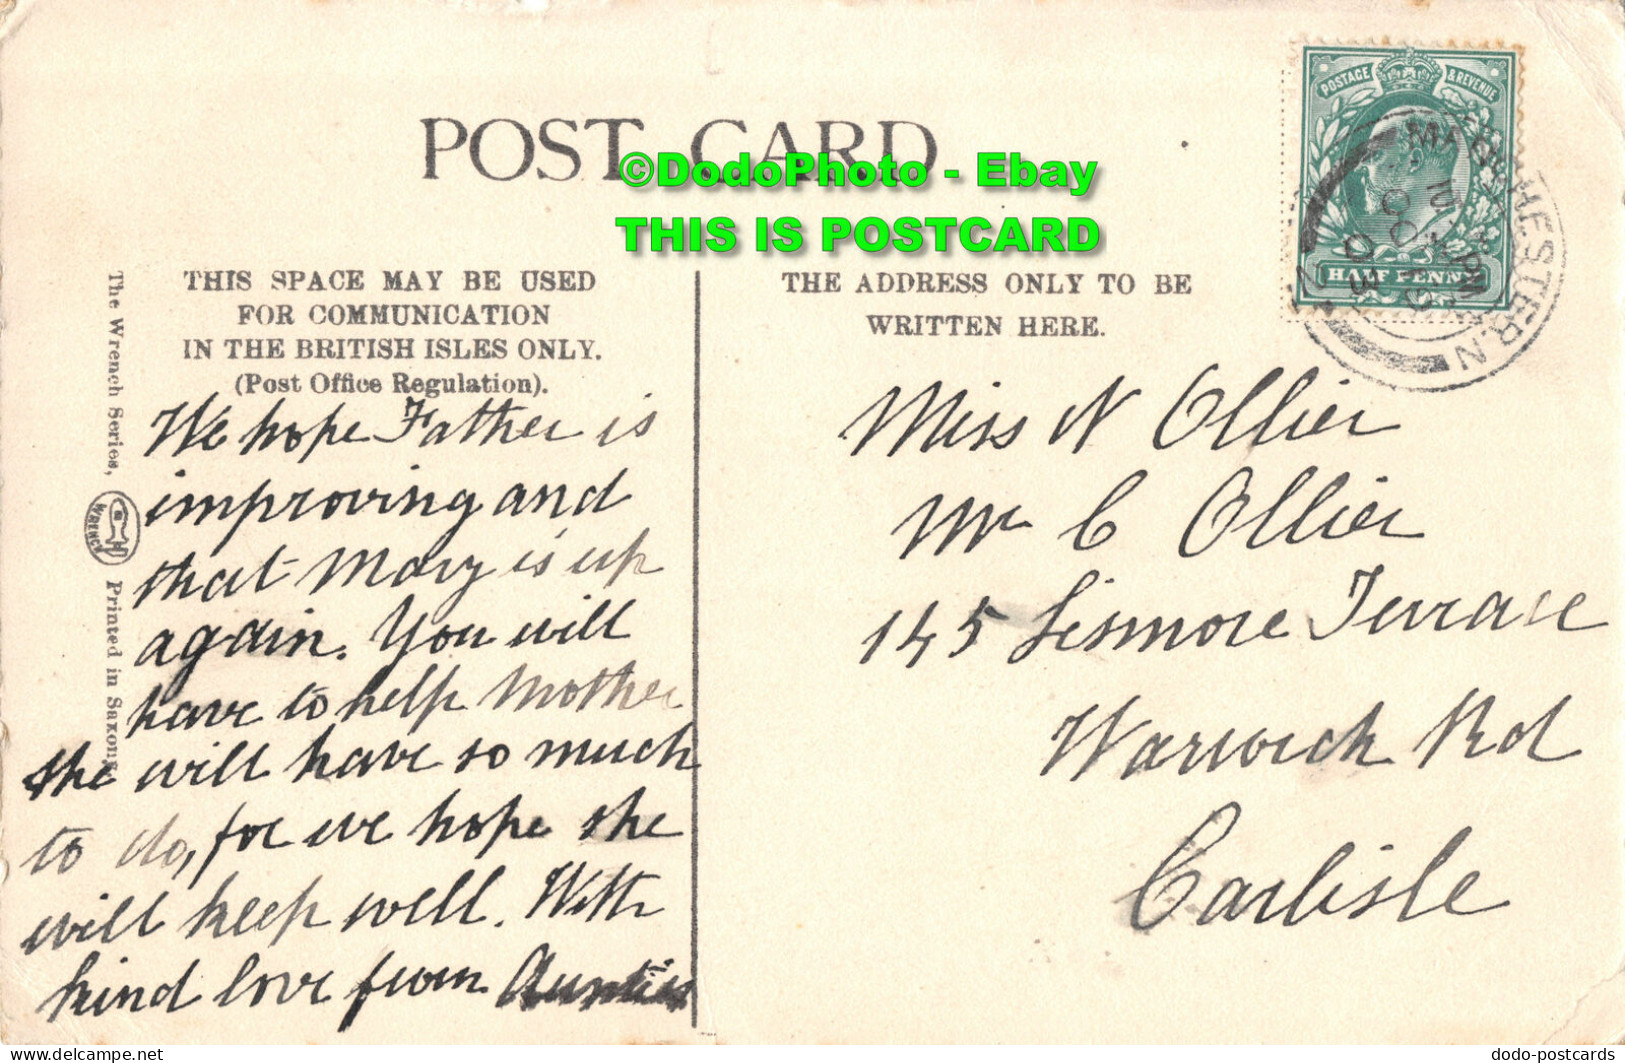 POST CARD
©DodoPhoto - Ebay
THIS IS POSTCARD
POSTAGE & REVENUE
HALF PENNY
MANCHESTER.N
THIS SPACE MAY BE USED
FOR COMMUNICATION
IN THE BRITISH ISLES ONLY.
(Post Office Regulation).
THE ADDRESS ONLY TO BE
WRITTEN HERE.
The Wrench Series,
WRENCH
Printed in Saxony
We hope Father is
improving and
that Mary is up
again. You will
have to help Mother
she will have so much
to do, for we hope she
will keep well. With
kind love from Aunties
Miss N Ollier
Mr C Ollier
145 Lismore Terrace
Warwick Rd
Carlisle
dodo-postcards
www.delcampe.net